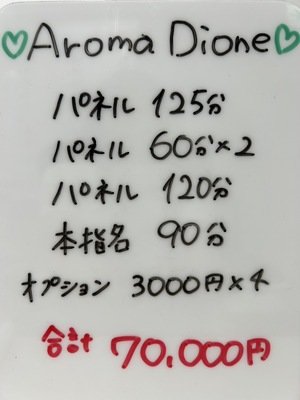 ♡Aroma Dione♡
パネル 125分
パネル 60分×2
パネル 120分
本指名 90分
オプション 3000円×4
合計 70,000円